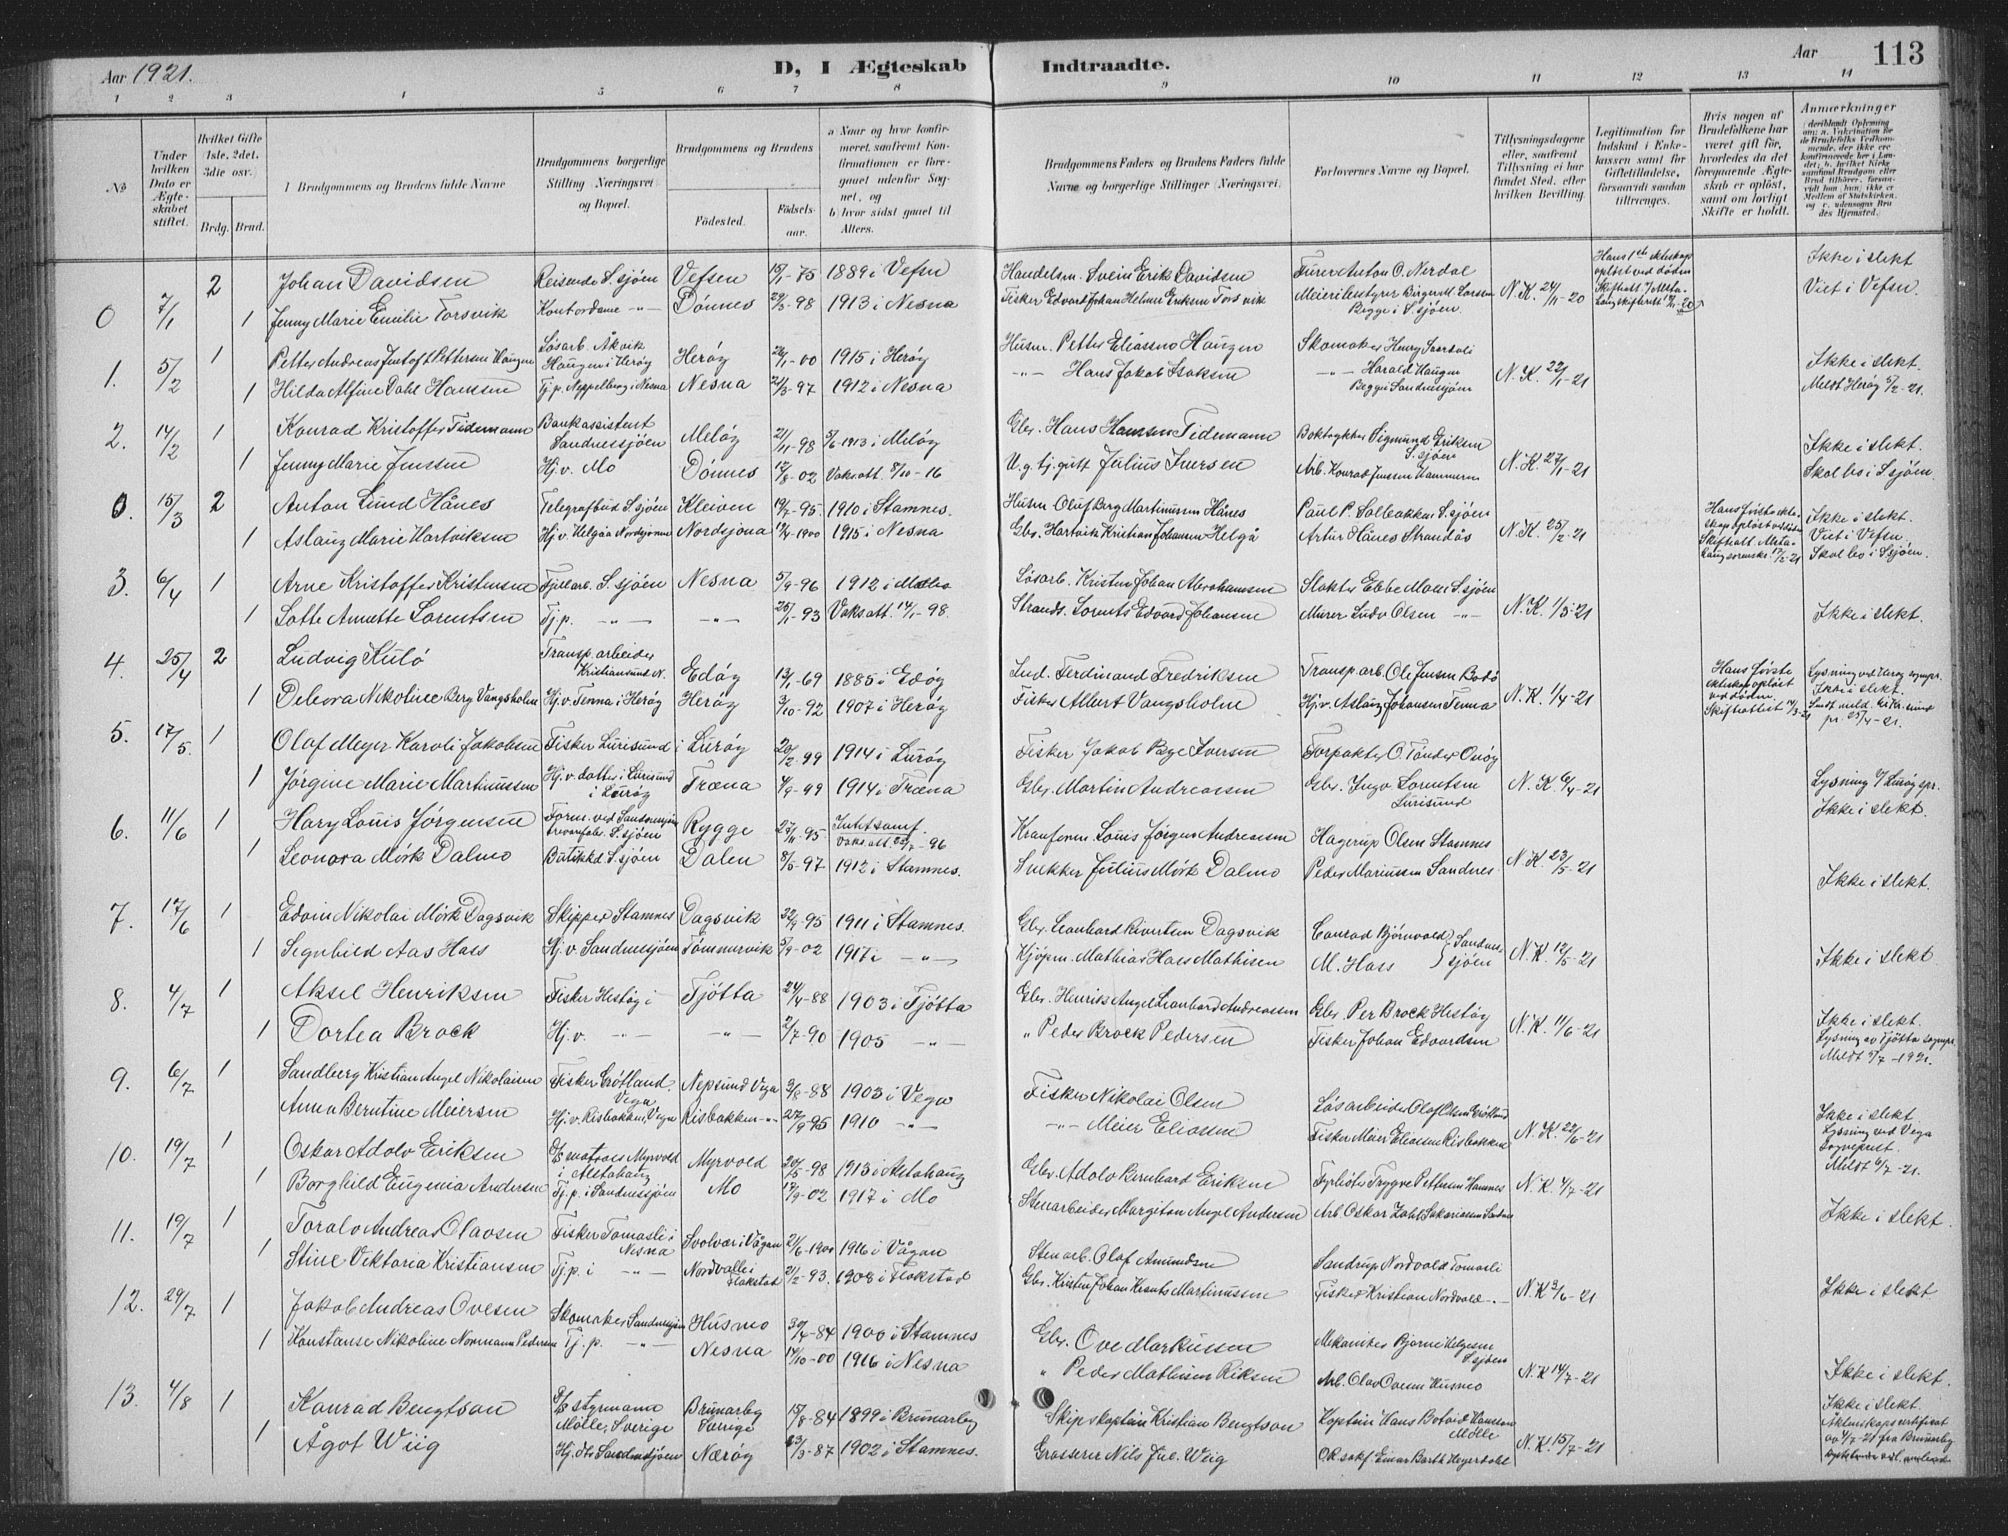 Aar 1921.
D, I Ægteskab Indtraadte.
Aar 113
1 2 3 4 5 6 7 8 9 10 11 12 13 14
No
Under hvilken Dato er Ægteskabet stiftet.
Hvilket Gifte 1ste, 2det, 3die osv.
Brdg. Brud.
Brudgommens og Brudens fulde Navne
Brudgommens borgerlige Stilling (Næringsvei) og Bopæl.
Brudgommens og Brudens
Fødested.
Fødselsaar.
a Naar og hvor konfirmeret, saafremt Konfirmationen er foregaaet udenfor Sognet, og
b hvor sidst gaaet til Alters.
Brudgommens Faders og Brudens Faders fulde Navne og borgerlige Stillinger (Næringsvei).
Forlovernes Navne og Bopæl.
Tillysningsdagene eller, saafremt Tillysning ei har fundet Sted, efter hvilken Bevilling.
Legitimation for Indskud i Enkekassen samt for Giftetilladelse, forsaavidt saadan tiltrænges.
Hvis nogen af Brudefolkene har været gift før, hvorledes da det foregaaende Ægteskab er opløst, samt om lovligt Skifte er holdt.
Anmærkninger
0 7/1 2 Johan Davidsen Reisende S.sjøen Vefsen 15/1-75 1889 i Vefsn Handelsm. Svein Erik Davidsen Furer Anton O. Nerdal Ikke i slekt
1 Jenny Marie Emilie Forsvik Kontordame -"- Dønnes 29/3-98 1913 i Nesna Fisker Edvard Johan Helmer Eriksen Forsvik Meieribestyrer Birger M. Larsen Begge i S.sjøen. N.K. 24/11-20 Viet i Vefsn.
1. 5/2 1 Petter Andreas Justoft Pettersen Haugen Løsarb. Åkvik Haugen i Herøy Herøy 26/1-00 1915 i Herøy Husm. Petter Eliassen Haugen Skomaker Henry Ikke i slekt
1 Hilda Alfine Dahl Hansen Tj.p. Neppelberg i Nesna Nesna 21/3-97 1912 i Nesna -"- Hans Jakob Isaksen -"- Harald Haugen Begge Sandnessjøen N.K. 22/1-21 Meldt Herøy 5/2-21.
2. 14/2 1 Konrad Kristoffer Tidemann Bankassistent Sandnessjøen Meløy 21/11-98 5/6-1913 i Meløy Gbr. Hans Hansen Tidemann Boktrykker Sigmund Eriksen S.sjøen Ikke i slekt.
1 Jenny Marie Jenssen Hj.v. Mo Dønnes 12/8-02 Vaks.att. 8/10-16 U.g. tj.gutt Julius Iversen Arb. Konrad Jenssen Hammeren N.K. 27/1-21 Skal bo i S.sjøen.
0. 15/3 2 Anton Lund Hånes Telegrafbud S.sjøen Kleiven 19/7-95. 1910 i Stamnes. Husm Oluf Berg Martinussen Hånes Paul P. Solbakken S.sjøen Ikke i slekt.
1 Aslaug Marie Hartviksen Hj.v. Helgåa Nordsjonen Nordsjona 17/4-1900 1915 i Nesna Gbr. Hartvik Kristian Johansen Helgå Artur Hånes Strandås N.K. 25/2-21 Viet i Vefsn. Skal bo i S.sjøen.
3. 6/4 1 Arne Kristoffer Kristensen Fjellarb. S.sjøen Nesna 5/9-96 1912 i Løsarb. Kristen Johan Abrahamsen Slakter Ebbe Moen S.sjøen
1 Lotte Annette Lorentsen Tj.p. -"- -"- 25/1-93 Vaks.att. 14/1-98. Strands. Lorents Edvard Johansen Murer Ludv Olsen -"- N.K. 1/3-21 Ikke i slekt.
4. 25/4 2 Ludvig Kulø Transp. arbeider Kristiansund N. Edøy 13/1-69 1885 i Edøy Ind. Ferdinand Fredriksen Transp.arb. Ole Jensen Bodø Hans første ekteskap opløst ved døden. Skifteattest
1 Debora Nikoline Berg Vangsholm Hj.v. Tenna i Herøy Herøy 3/10-92 1907 i Herøy Fisker Albert Vangsholm Hj.v. Aslaug Johansen Tenna N.K. 1/4-21 Ikke i slekt.
5. 17/5. 1 Olaf Meyer Karoli Jakobsen Fisker Lurisund i Lurøy 20/2-99 1914 i Lurøy Fisker Jakob Page Iversen Forpakter O. Tønder Onøy
1 Jørgine Marie Martinussen Hj.v. datter i Lurisund i Lurøy Træna 4/9-99 1914 i Træna Gbr. Martin Andreassen Gbr. Ingv Lorentsen Lurisund N.K. 6/4-21 Lysning v/ Lurøy spr. Ikke i slekt.
6. 11/6 1 Hary Louis Jørgensen Form. ved Sandnessjøen S.sjøen Rygge 27/11-95 Vaks.att. 22/7-96 Kranform Louis Jørgen Andreassen Hagerup Olsen Stamnes
1 Leonora Mörk Dalmo Butikkd. S.sjøen Dalen 8/5-97 1912 i Stamnes. Snekker Julius Mörk Dalmo Peder Mariussen Sandnes N.K. 23/5-21 Ikke i slekt.
7. 17/6 1 Edvin Nikolai Mörk Dagsvik Skipper Stamnes Dagsvik 22/9-95 1911 i Stamnes. Gbr. Leonhard Sivertsen Dagsvik Conrad Bjørnvold Sandnessjøen
1 Segnhild Aas Hass Hj.v. Sandnessjøen Tømmervik 5/9-02 1917 i -"- Kjöpm. Mathias Hass Mathisen M. Hass N.K. 12/5-21 Ikke i slekt.
8. 4/7 1 Aksel Henriksen Fisker Hestøy i Tjøtta 24/4-88 1903 i Tjøtta Gbr. Henrik Angel Leonhard Andreassen Gbr Per Brock Hestøy
1 Dortea Brock Hj.v. -"- -"- 2/7-90 1905 -"- " Peder Brock Pedersen Fisker Johan Edvardsen N.K. 11/6-21 Ikke i slekt. Lysning av Tjøtta sognepr. Meldt 5/7-1921.
9. 6/7 1 Sandberg Kristian Angel Nikolaisen Fisker Grøtland. Vega Nepsund Vega 3/8-88 1903 i Vega Fisker Nikolai Olsen Løsarbeider Olaf Olsen Grøtland
Anna Berntine Meiersen Hj.v. Risbakken, Vega Risbakken -"- 27/9-95 1910 -"- -"- Meier Eliassen Fisker Meier Eliassen Risbakken N.K. 22/6-21 Ikke i slekt. Lysning ved Vega Sogneprest. Meldt 6/7-21.
10. 19/7 1 Oskar Adolv Eriksen D/S matros Myrvold i Alstahaug Myrvold 20/5-98 1913 i Alstahaug Gbr. Adolv Bernhard Eriksen Fyrbøter Trygve Pettersen Hamnes
1 Borghild Eugenia Andersen Tj.p. i Sandnessjøen Mo 17/9-02 1917 i Mo Stenarbeider Margiton Angel Andersen Arb. Oskar Zahl Sakariassen Sandnes N.K. 4/7-21 Ikke i slekt.
11. 19/7 1 Toralv Andreas Olavsen Fisker Tomasli i Nesna Svolvær i Vågan 21/6-1900 1916 i Vågan Stenarb. Olaf Amundsen Sandrup Nordvold Tomasli
1 Stine Viktoria Kristiansen Tj.p. i -"- Nordvalle i Flakstad 21/2-93. 1908 i Flakstad Gbr. Kristen Johan Krents Martinussen Fisker Kristian Nordvold -"- N.K. 3/6-21 Ikke i slekt
12. 29/7 1 Jakob Andreas Ovesen Skomaker Sandnessjøen Husmo 30/4-84 1900 i Stamnes Gbr. Ove Markussen Mekaniker Bjarne Helgesen S.sjøen
1 Konstanse Nikoline Normann Pedersen Tj.p. -"- Nesna 17/10-00 1916 i Nesna " Peder Mathisen Riksen Arb. Olav Ovesen Husmo N.K. 14/7-21 Ikke i slekt.
13. 4/8 1 Konrad Bengtson D/S styrmann Mölle, Sverige Brunarby Sverige 15/8-84 1899 i Brunarby Skipskaptein Kristian Bengtson Kaptein Hans Botvid Hansson Mölle Ikke i slekt.
1 Ågot Wiig Hj.dtr Sandnessjøen Nærøy 23/3-87 1902 i Stamnes. Grosserer Nils Jul. Wiig O.R.sakf. Einar Barth Heyerdahl N.K. 15/7-21